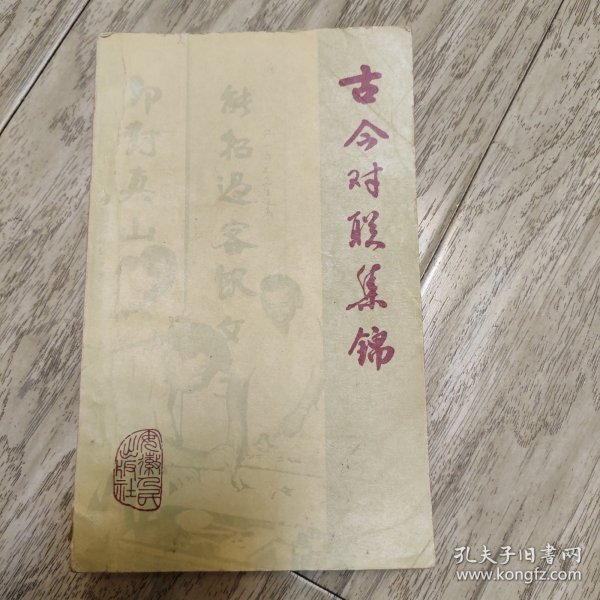 古今对联集锦
能招过客饮文
即对真山
安徽人民
出版社
孔夫子旧书网
www.kongfz.com